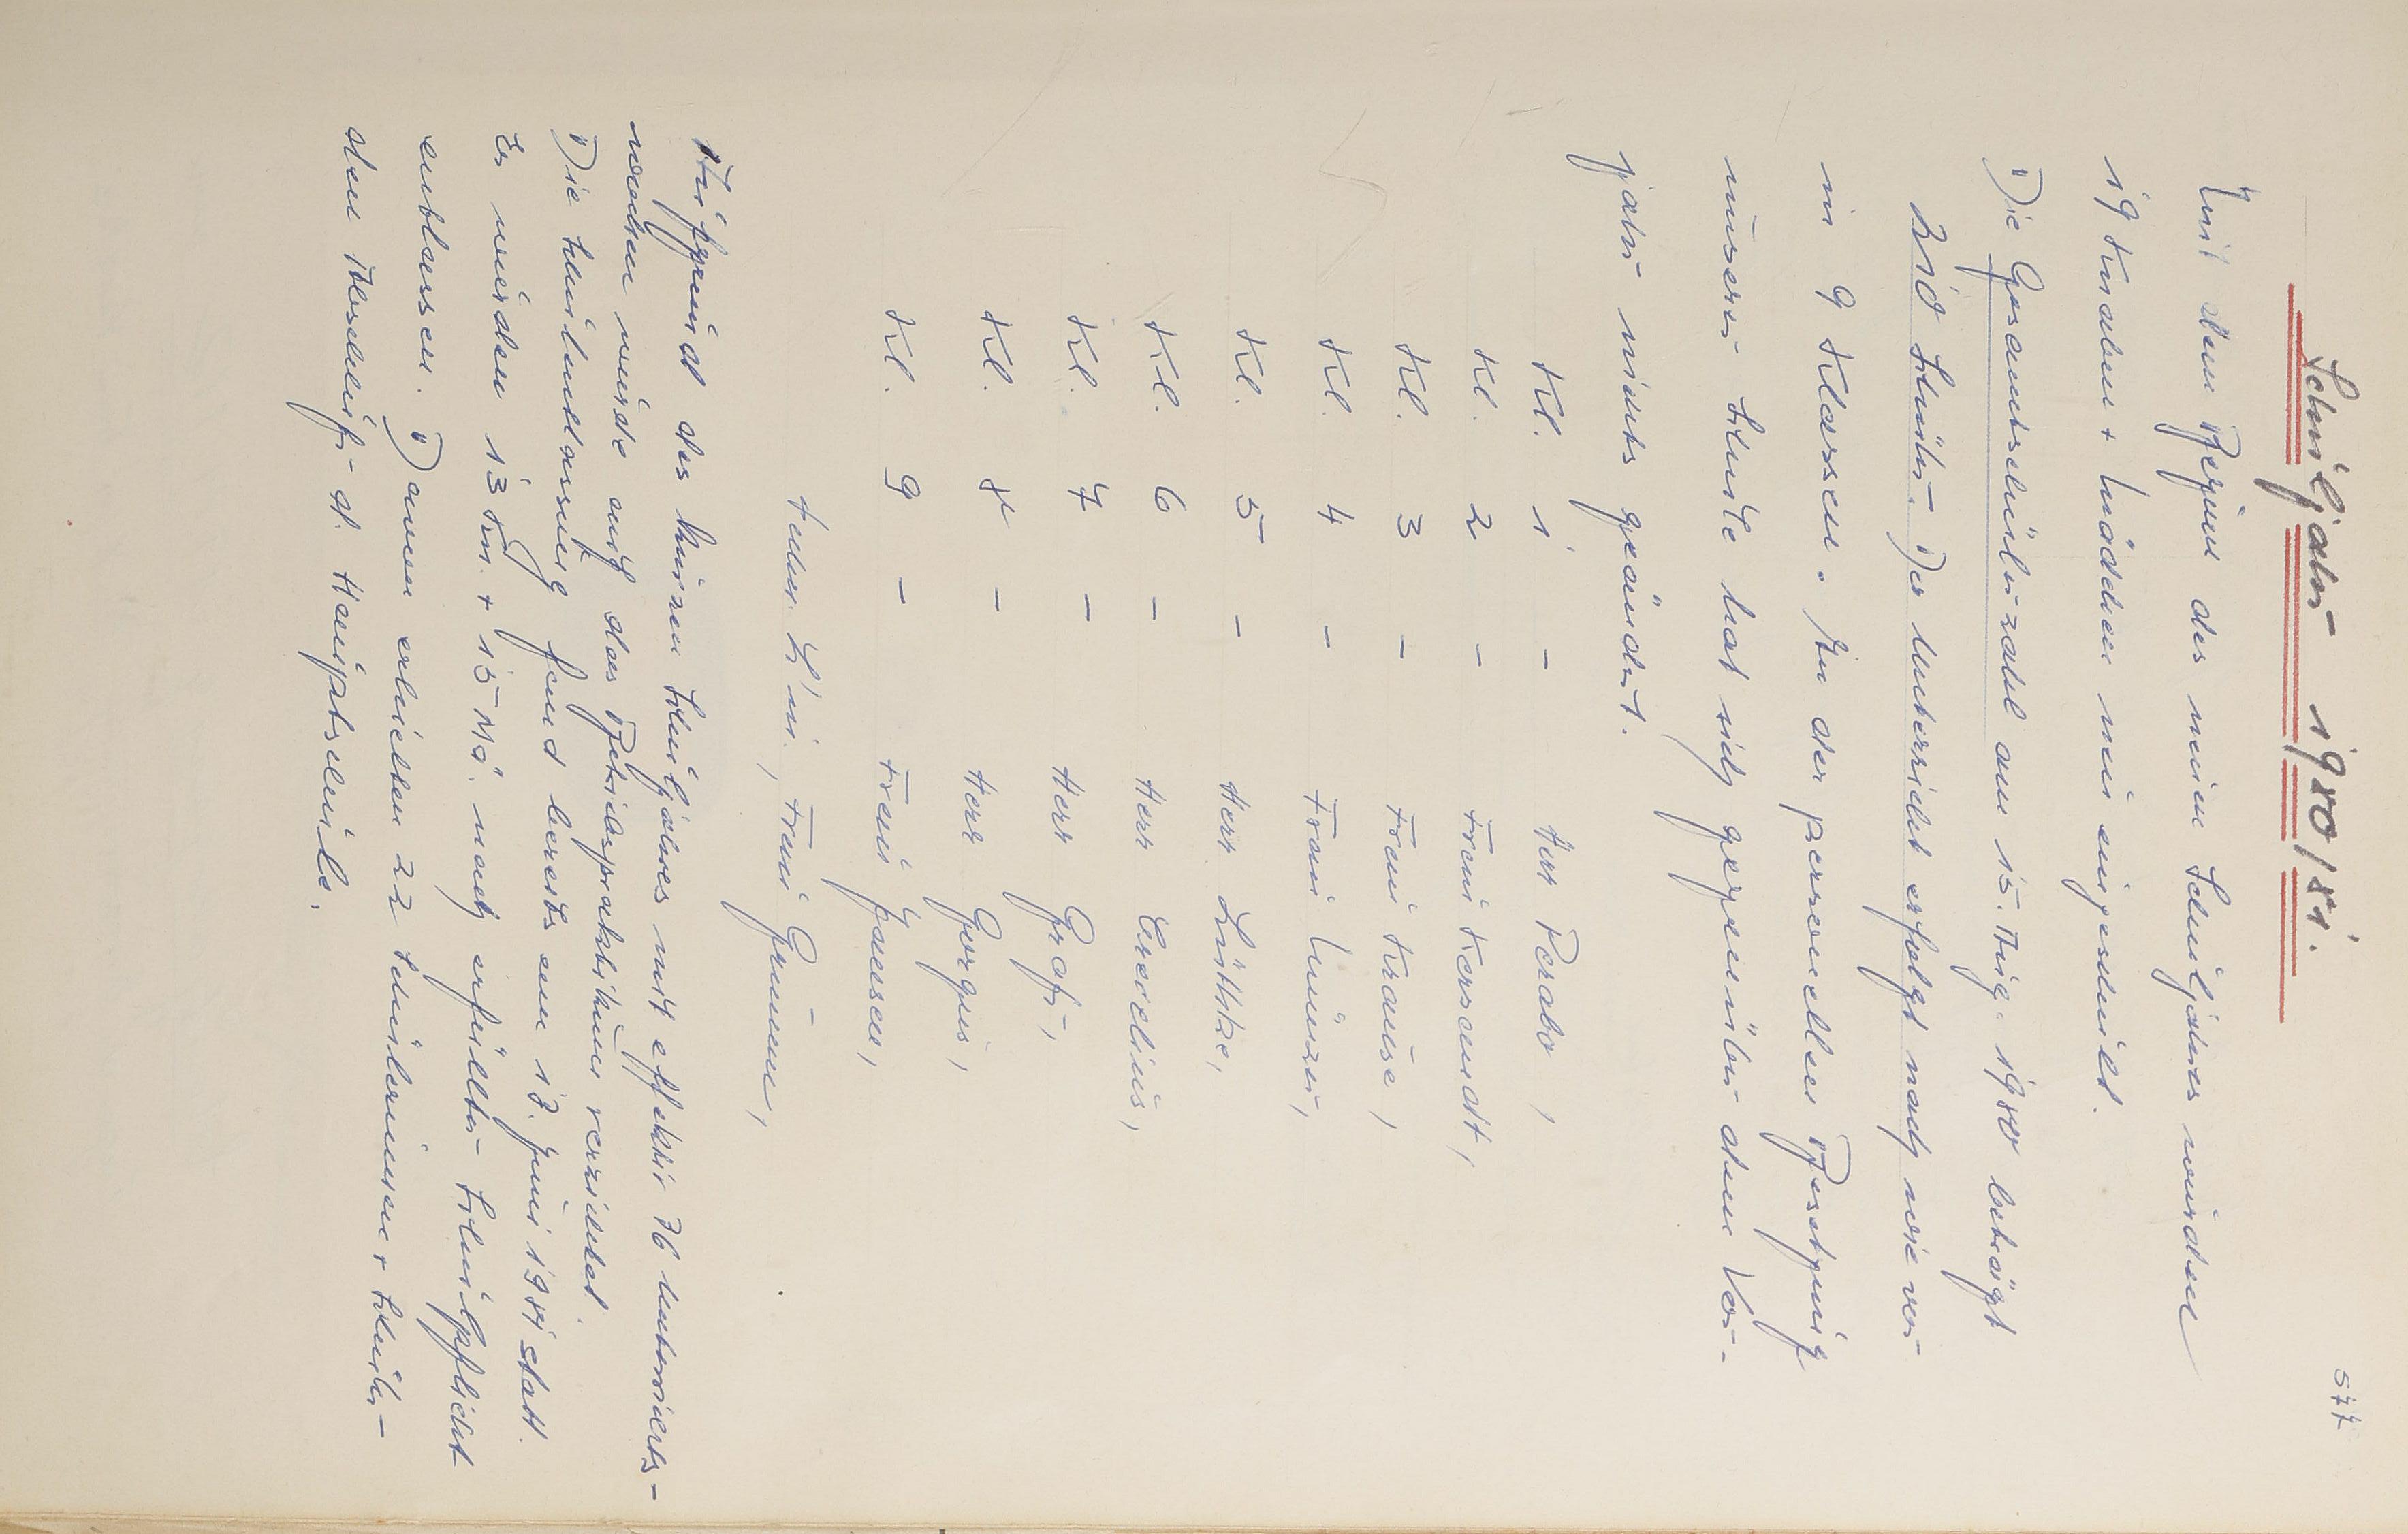 577
Schuljahr 1980/81.
Mit dem Beginn des neuen Schuljahres wurden
19 Knaben + Mädchen neu eingeschult.
Die Gesamtschülerzahl am 15. Aug. 1980 beträgt
210 Schüler. Der Unterricht erfolgt nach wie vor
in 9 Klassen. In der personellen Besetzung
unserer Schule hat sich gegenüber dem Vor-
jahr nichts geändert.
Kl. 1 - Herr Perabo,
Kl. 2 - Frau Kersandt,
Kl. 3 - Frau Krause,
Kl. 4 - Frau Münzer,
Kl. 5 - Herr Lüttke,
Kl. 6 - Herr Erdelius,
Kl. 7 - Herr Graf,
Kl. 8 - Herr Gorgus,
Kl. 9 - Frau Jansen,
Frau Grumm,
Aufgrund des kurzen Schuljahres mit effektiv 36 Unterrichts-
wochen wurde auf das Betriebspraktikum verzichtet.
Die Schulentlassung fand bereits am 13. Juni 1981 statt.
Es wurden 13 Kn. + 15 Mä. nach erfüllter Schulpflicht
entlassen. Davon erhielten 22 Schülerinnen + Schüler
den Abschluß d. Hauptschule.